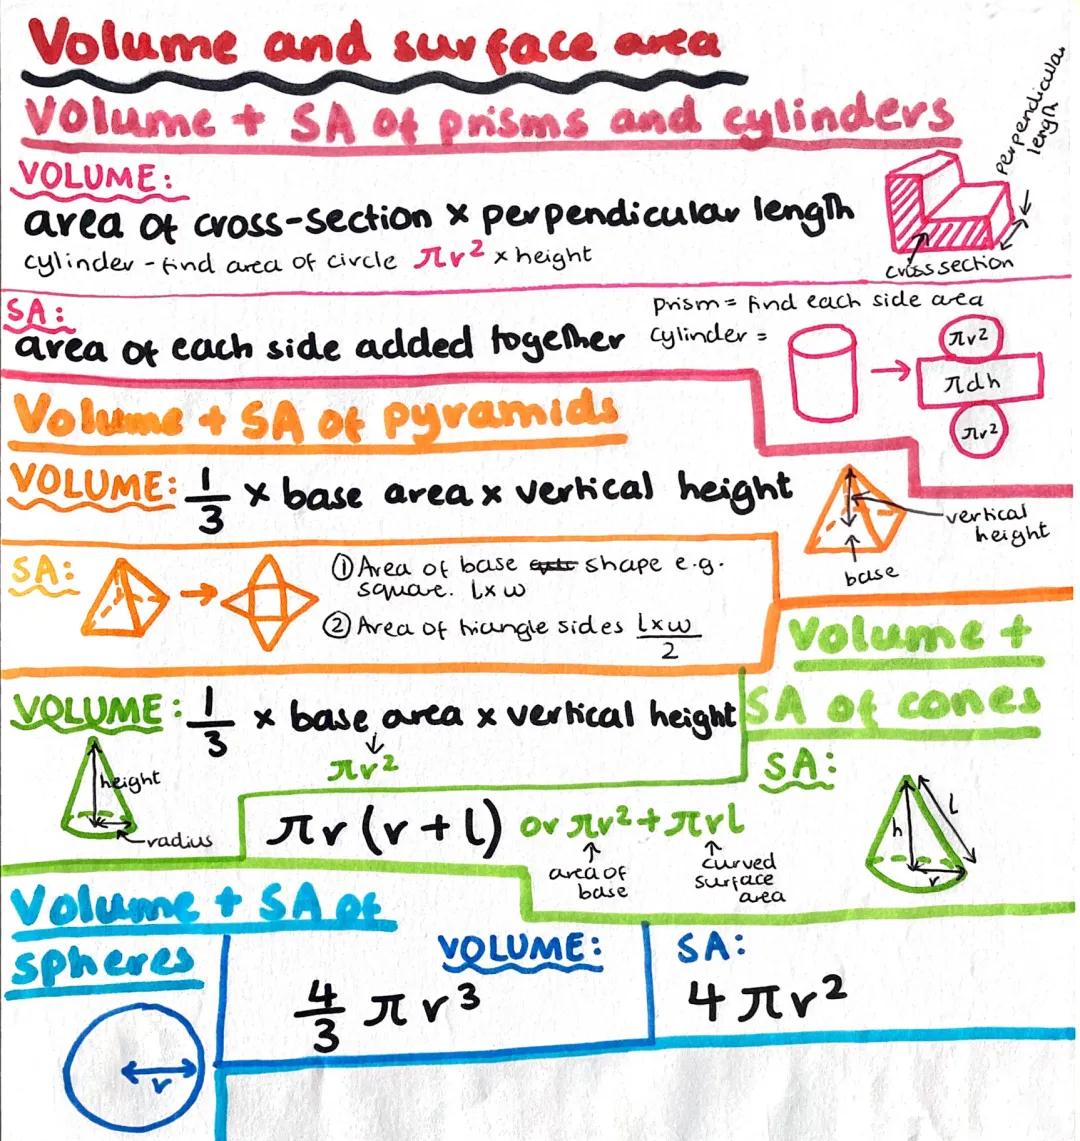 Volume and surface area
Volume + SA of prisms and cylinders
perpendicular
length
VOLUME:
area of cross-section × perpendicular length
cylinder - find area of circle πr² × height
cross section
SA:
area of each side added together
prism = find each side area
cylinder =
πr²
πdh
πr²
Volume + SA of pyramids
VOLUME: 1/3 × base area × vertical height
vertical
height
base
SA:
① Area of base shape e.g.
square. l×w
② Area of triangle sides l×w/2
Volume +
SA of cones
VOLUME: 1/3 × base area × vertical height
πr²
height
radius
SA:
πr(r + l) or πr² + πrl
area of
base
curved
surface
area
h
l
r
Volume + SA of
spheres
VOLUME:
4/3 πr³
SA:
4πr²
r